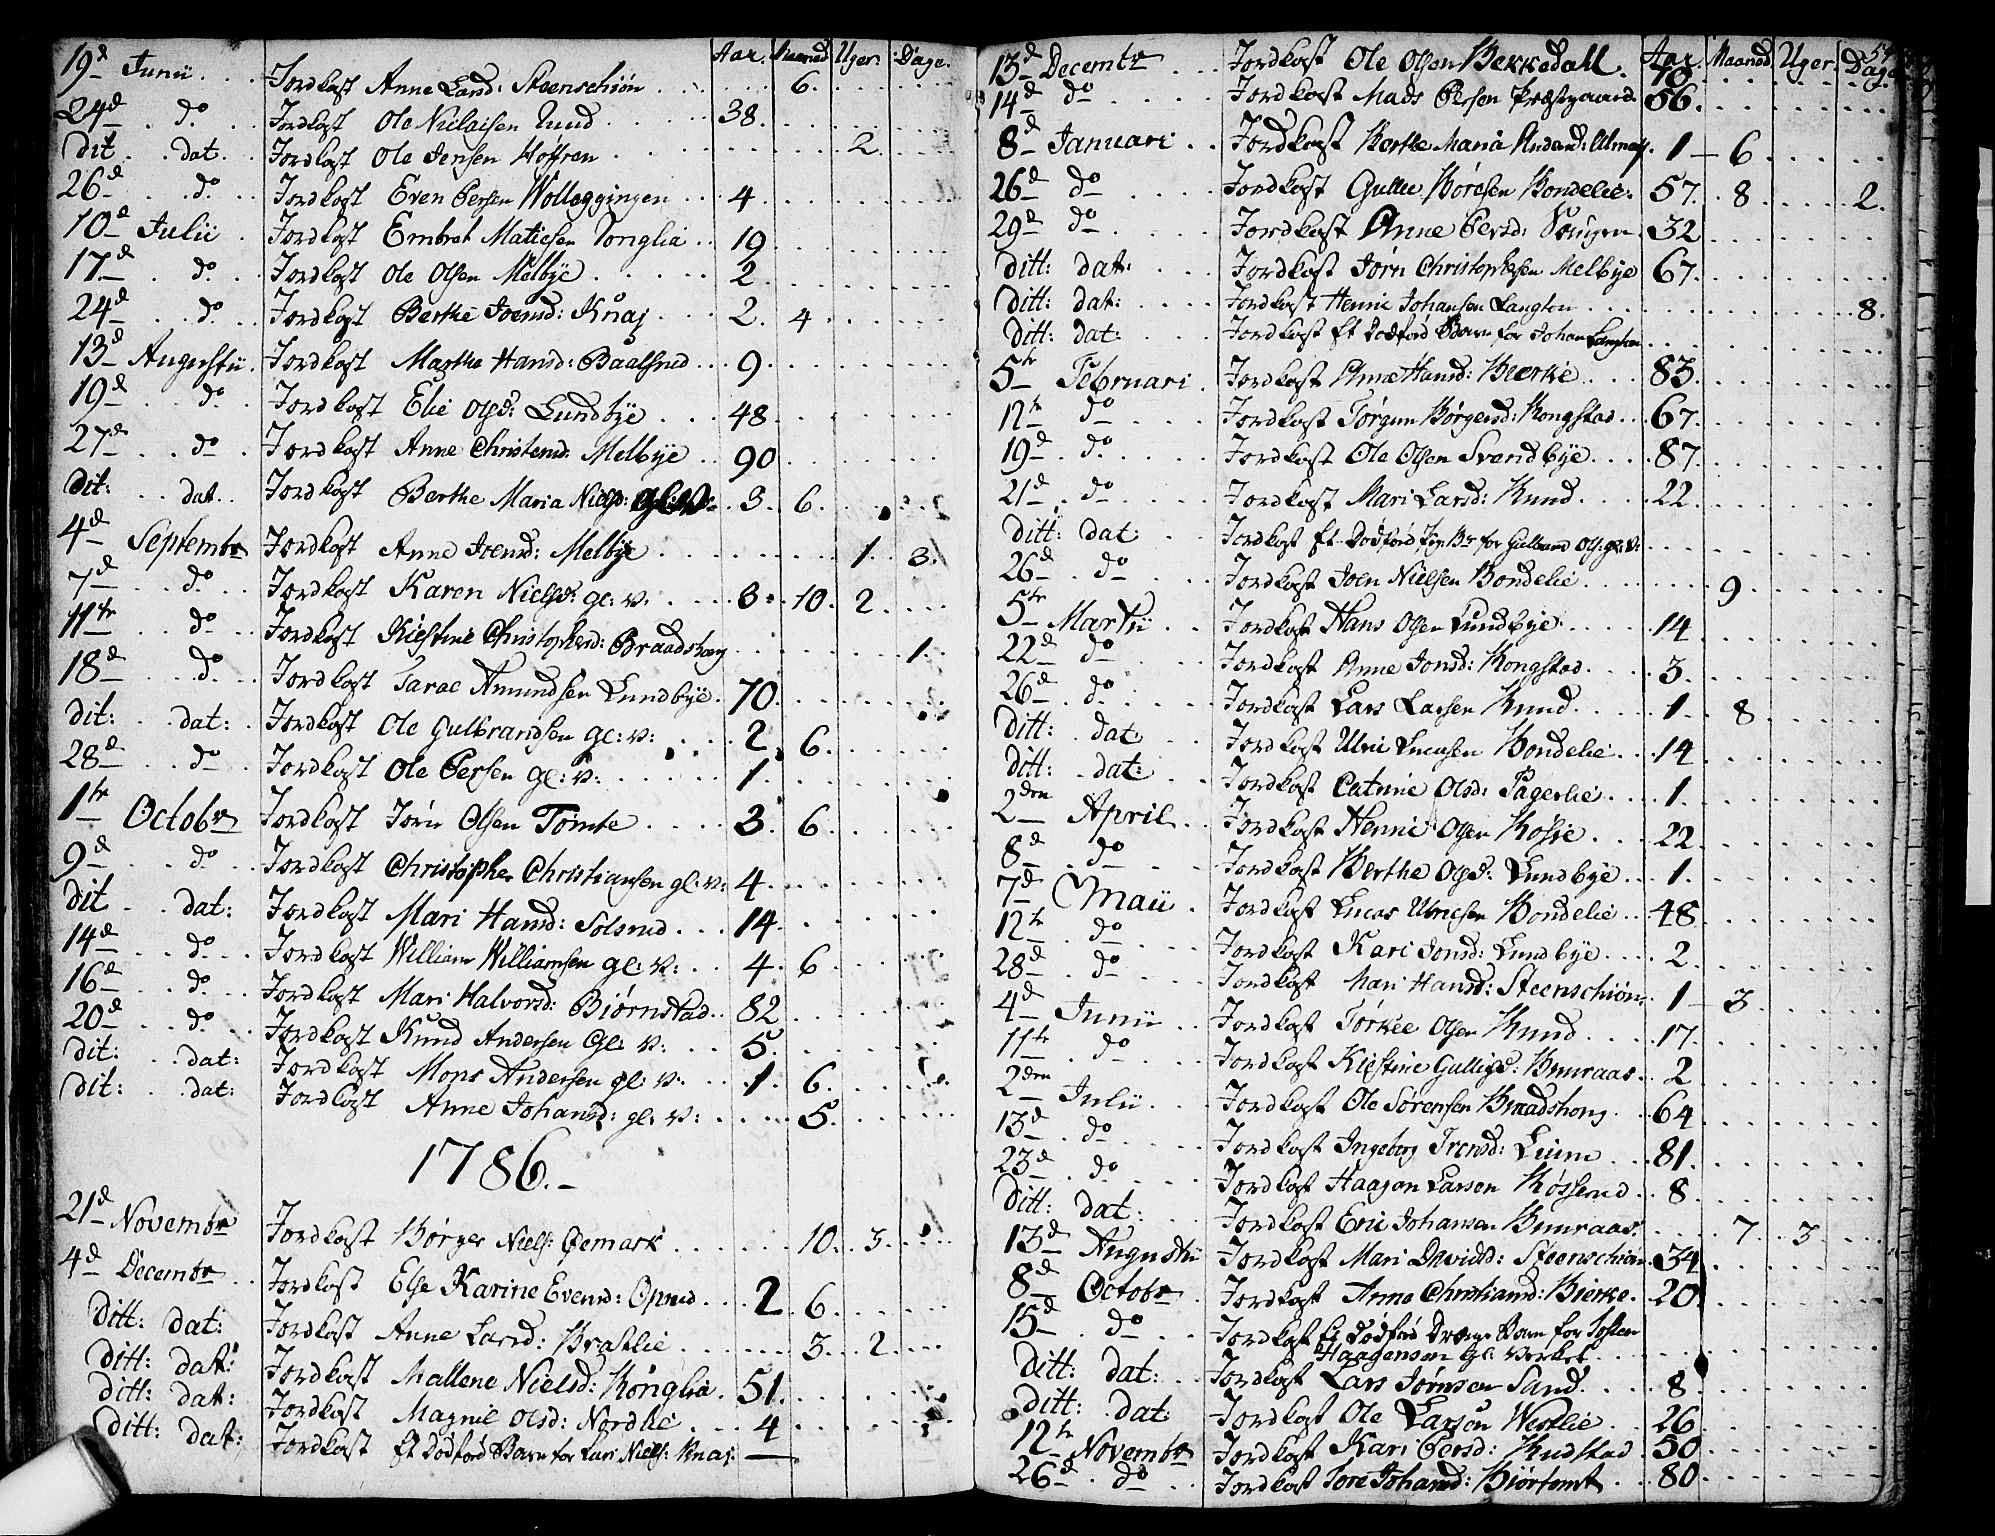 Aar. Maaned Uger. Dage.
19d Junii Jordkast Anne Larsd: Steenschiøn 6.
24d do Jordkast Ole Nielsen Lund 38.
dit dat. Jordkast Ole Jensen Hoffren 2.
26d do Jordkast Even Persen Wolleggingen 4.
10d Julii Jordkast Embret Matiesen Konglia 19
17d do Jordkast Ole Olsen Melbÿe 2
24d do Jordkast Berthe Joensd: Knaj 2. 4
13d Augustii Jordkast Marthe Hansd: Baalsrud 9
19d do Jordkast Elie Olsd: Lundbÿe 48.
27d do Jordkast Anne Christensd: Melbÿe 90
dit: dat Jordkast Berthe Maria Nielsd: gl: v: 3. 6.
4d Septembr Jordkast Anne Joensd: Melbÿe 1. 3.
7d do Jordkast Karen Nielsd: gl: v: 3. 10. 2
11te do Jordkast Kiestine Christophersd: Braadshoug 1.
18d do Jordkast Taral Amundsen Lundbÿe. 70
dit: dat: Jordkast Ole Gulbrandsen gl: v: 2 6.
28d do Jordkast Ole Persen gl: v: 1.
1te Octobr Jordkast Jørn Olsen Tomte 3. 6.
9d do Jordkast Christopher Christiansen gl: v: 4.
dit dat: Jordkast Mari Hansd: Solsrud 14.
14d do Jordkast William Williamsen gl: v: 4. 6
16d do Jordkast Mari Halvorsd: Biørnstad 82
20d do Jordkast Knud Andersen gl: v: 5.
dit: dat: Jordkast Mons Andersen gl: v: 1. 6.
dit: dat: Jordkast Anne Johansd: gl: v: 5.
1786.
21d Novembr Jordkast Børger Niels: Ødemark 10. 3.
4d Decembr Jordkast Else Karine Evensd: Opsud 2 6.
ditt: dat: Jordkast Anne Larsd: Bratlie 3. 2.
ditt: dat: Jordkast Mallene Nielsd: Konglia. 51.
ditt: dat: Jordkast Magnil Olsd: Nordlie 4
ditt: dat: Jordkast Et Dødfød Barn for Lars Niels: Knaj.
54
Aar. Maaned Uger. Dage
13d Decembr Jordkast Ole Olsen Bekkedall. 40
14d do Jordkast Mads Persen Præstgaard. 56.
8d Januari Jordkast Berthe Maria 1 6
26d do Jordkast Gullie Børresen Bondelie. 57. 8 2.
29d do Jordkast Anne Persd: 32
ditt: dat: Jordkast Jørn Christophersen Melbÿe 67.
ditt: dat: Jordkast Henrie Johansen Langton 8.
ditt: dat: Jordkast Et Dødfød Barn for Johan Langton
5te Februari Jordkast Anne Hansd: Bierke 83.
12te do Jordkast Jørgun Børgersd: Kongstad 67.
19d do. Jordkast Ole Olsen Svendbÿe 87.
21d do Jordkast Mari Larsd: Rund 22
ditt: dat Jordkast Et Dødfød Pige Br for Gulbrand Ols: gl: v:
26d do Jordkast Joen Nielsen Bondelie 9.
5te Martii Jordkast Hans Olsen Lundbÿe 14
22d do Jordkast Anne Jonsd: Kongstad 3.
26d do Jordkast Lars Larsen Rund 1. 8
ditt: dat Jordkast Ulric Lucasen Bondelie 14
ditt: dat: Jordkast Catrine Olsd: Fagerlie 1.
2den April Jordkast Henric Olsen 22
8d do Jordkast Berthe Olsd: Lundbÿe 1.
7d Maii Jordkast Lucas Ulricsen Bondelie 48
12te do Jordkast Kari Jonsd: Lundbÿe 2
28d do Jordkast Mari Hansd: Steenschiøn 1 3
4d Junii Jordkast Torkel Olsen Rund 17.
11te do Jordkast Kiestine Gulligsd: Bruraas 2
2den Julii Jordkast Ole Sørensen Braadshoug 64
13d do Jordkast Ingeborg Trensd: Liund 81.
23d do Jordkast Haagen Larsen Røsserud 8.
ditt: dat: Jordkast Eric Johansen Bruraas. 7 3
13d Augustii Jordkast Mari Davidsd: Steenschiøn 34
8d Octobr Jordkast Anne Christiansd: Bierke. 20.
15d do Jordkast Et Dødfød Drenge Barn for Josten
Haagensen gl: verket
ditt: dat: Jordkast Lars Jørnsen Sand 8
ditt: dat: Jordkast Ole Larsen Westlie 26
12te Novembr Jordkast Kari Persd: Rudstad 50
26d do Jordkast Tore Johansd: Biørtomt 80